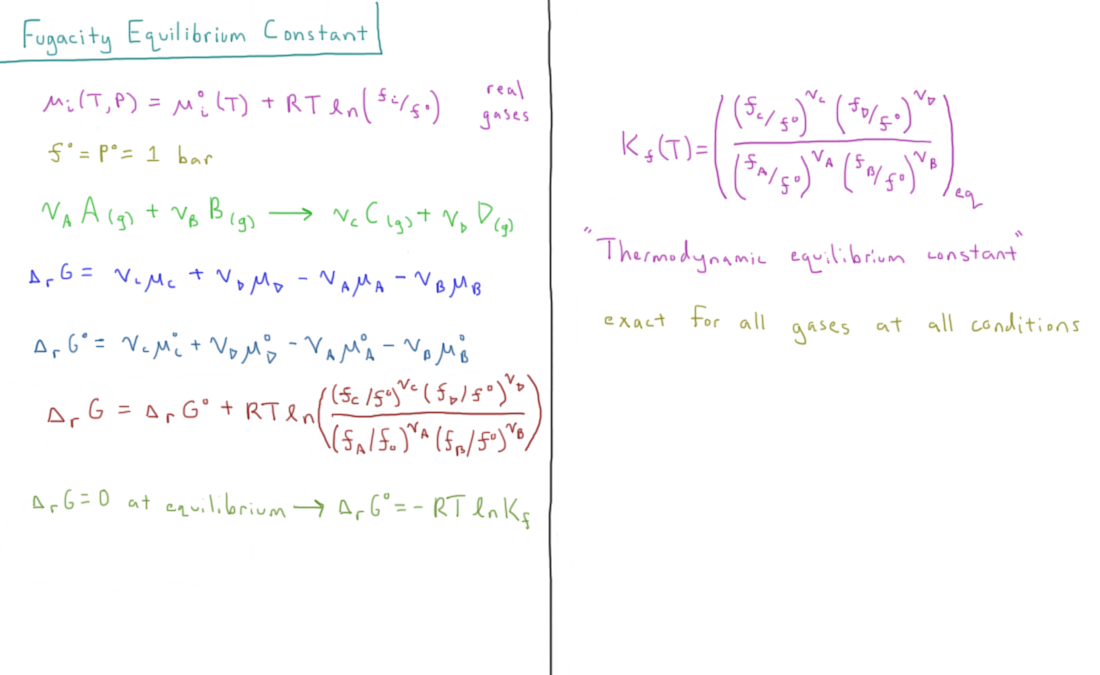 Fugacity Equilibrium Constant
μᵢ(T,P) = μᵢ°(T) + RT ln(fᵢ/f°) real gases
f° = P° = 1 bar
ν_A A(g) + ν_B B(g) ⟶ ν_C C(g) + ν_D D(g)
Δ_rG = ν_C μ_C + ν_D μ_D − ν_A μ_A − ν_B μ_B
Δ_rG° = ν_C μ_C° + ν_D μ_D° − ν_A μ_A° − ν_B μ_B°
Δ_rG = Δ_rG° + RT ln((f_C/f°)^ν_C (f_D/f°)^ν_D / (f_A/f_o)^ν_A (f_B/f°)^ν_B)
Δ_rG = 0 at equilibrium → Δ_rG° = − RT ln K_f
K_f(T) = ((f_C/f°)^ν_C (f_D/f°)^ν_D / (f_A/f°)^ν_A (f_B/f°)^ν_B)_eq
"Thermodynamic equilibrium constant"
exact for all gases at all conditions